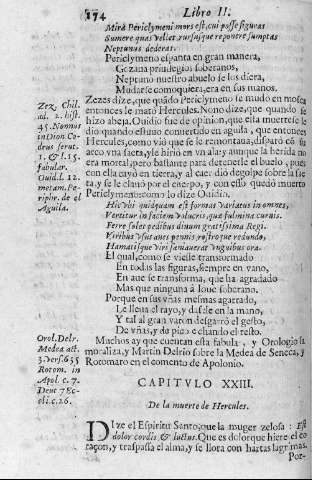 174 Libro II.
Mira Periclymeni mors est, cui posse figuras
Sumere quas vellet, rursusque reponere sumptas
Neptunus dederat.
Periclymeno espanta en gran manera,
Gozaua priuilegios soberanos,
Neptuno nuestro abuelo se los diera,
Mudarse comoquiera, era en sus manos.
Zezes dize, que quãdo Periclymeno se mudo en mosca
entonces le matò Hercules. Nono dize, que quando se
hizo abeja. Ouidio fue de opinion, que esta muerte le
dio quando estuuo conuertido en aguila, que entonces
Hercules, como viò que se le remontaua, disparò cõ su
arco vna saeta, y le hirio en vn ala y aunque la herida no
era mortal, pero bastante para detenerle el buelo, pues
con ella cayò en tierra, y al caer dio de golpe sobre la sie
ta, y se le clauò por el cuerpo, y con esso quedò muerto
Periclymeno: como lo dize Ouidio.
Hic vbi quidquam est formas variatus in omnes,
Vertitur in faciem volucris, quæ fulmina curuis.
Ferre solet pedibus diuum gratissima Regi.
Viribus vsus aues pennis, rostroque redundo,
Hamatisque viri laniauerat vnguibus ora.
El qual, como se viesse transformado
En todas las figuras, siempre en vano,
En aue se transforma, que ha agradado
Mas que ninguna à Ioue soberano.
Porque en sus vñas mesmas agarrado,
Le lleua el rayo, y da le en la mano,
Y tal al gran varon desgarrò el gesto,
De vñas, y de pico echando el resto.
Muchos ay que cuentan esta fabula, y Orologio la
moraliza, y Martin Delrio sobre la Medea de Seneca, y
Rotomaro en el comento de Apolonio.
CAPITVLO XXIII.
De la muerte de Hercules.
DIze el Espiritu Santo, que la muger zelosa: Est
dolor cordis & luctus. Que es dolor que hiere el co
raçon, y traspassa el alma, y se llora con hartas lagrimas.
Por-
Zez. Chil.
ad. 2. hist.
45. Nonnus
in Dion. Co-
drus serut.
1. & l. 15.
fabular.
Ouid. l. 12.
metam. Pe-
ripir. de el
Aguila.
Orol. Delr.
Medea act.
3. vers. 635
Rotom. in
Apol. c. 7.
Deut. 7 Ec-
oli. c. 26.